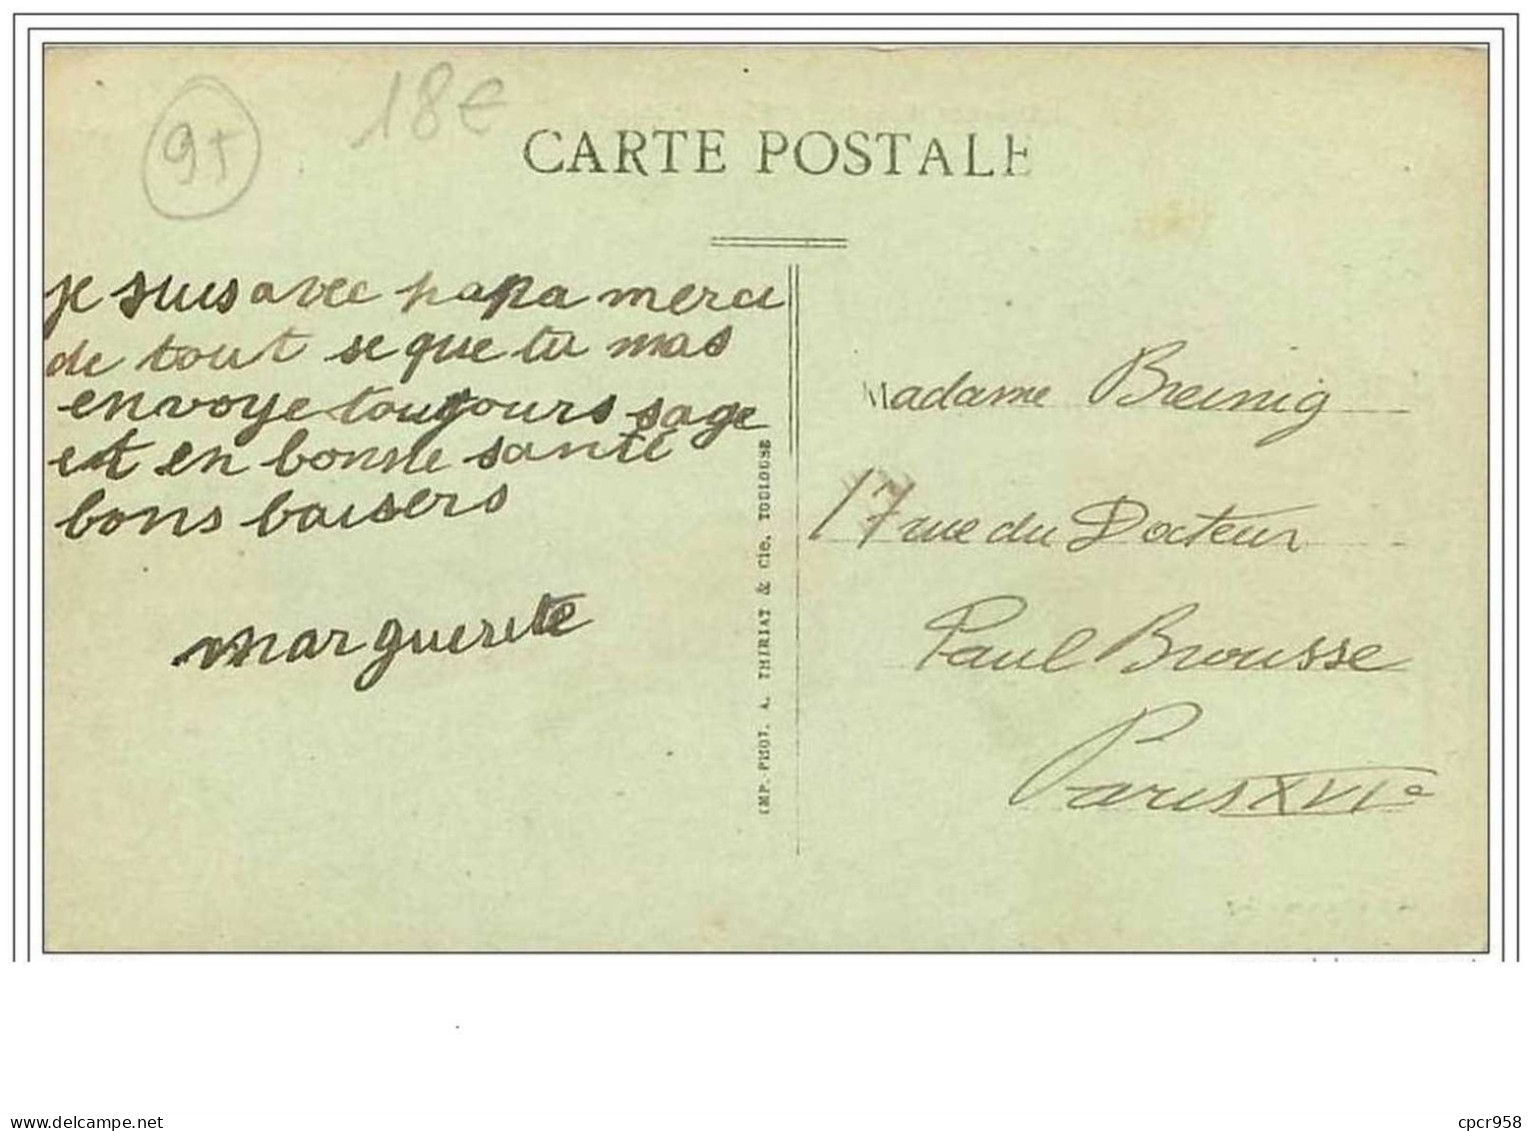 95
18€
CARTE POSTALE
je suis avec papa merci
de tout se que tu mas
envoye toujours sage
et en bonne santé
bons baisers
marguerite
IMP.-PHOT. A. THIRIAT & Cie. TOULOUSE
Madame Breinig
17 rue du Docteur
Paul Brousse
Paris XVIe
delcampe.net
cpcr958